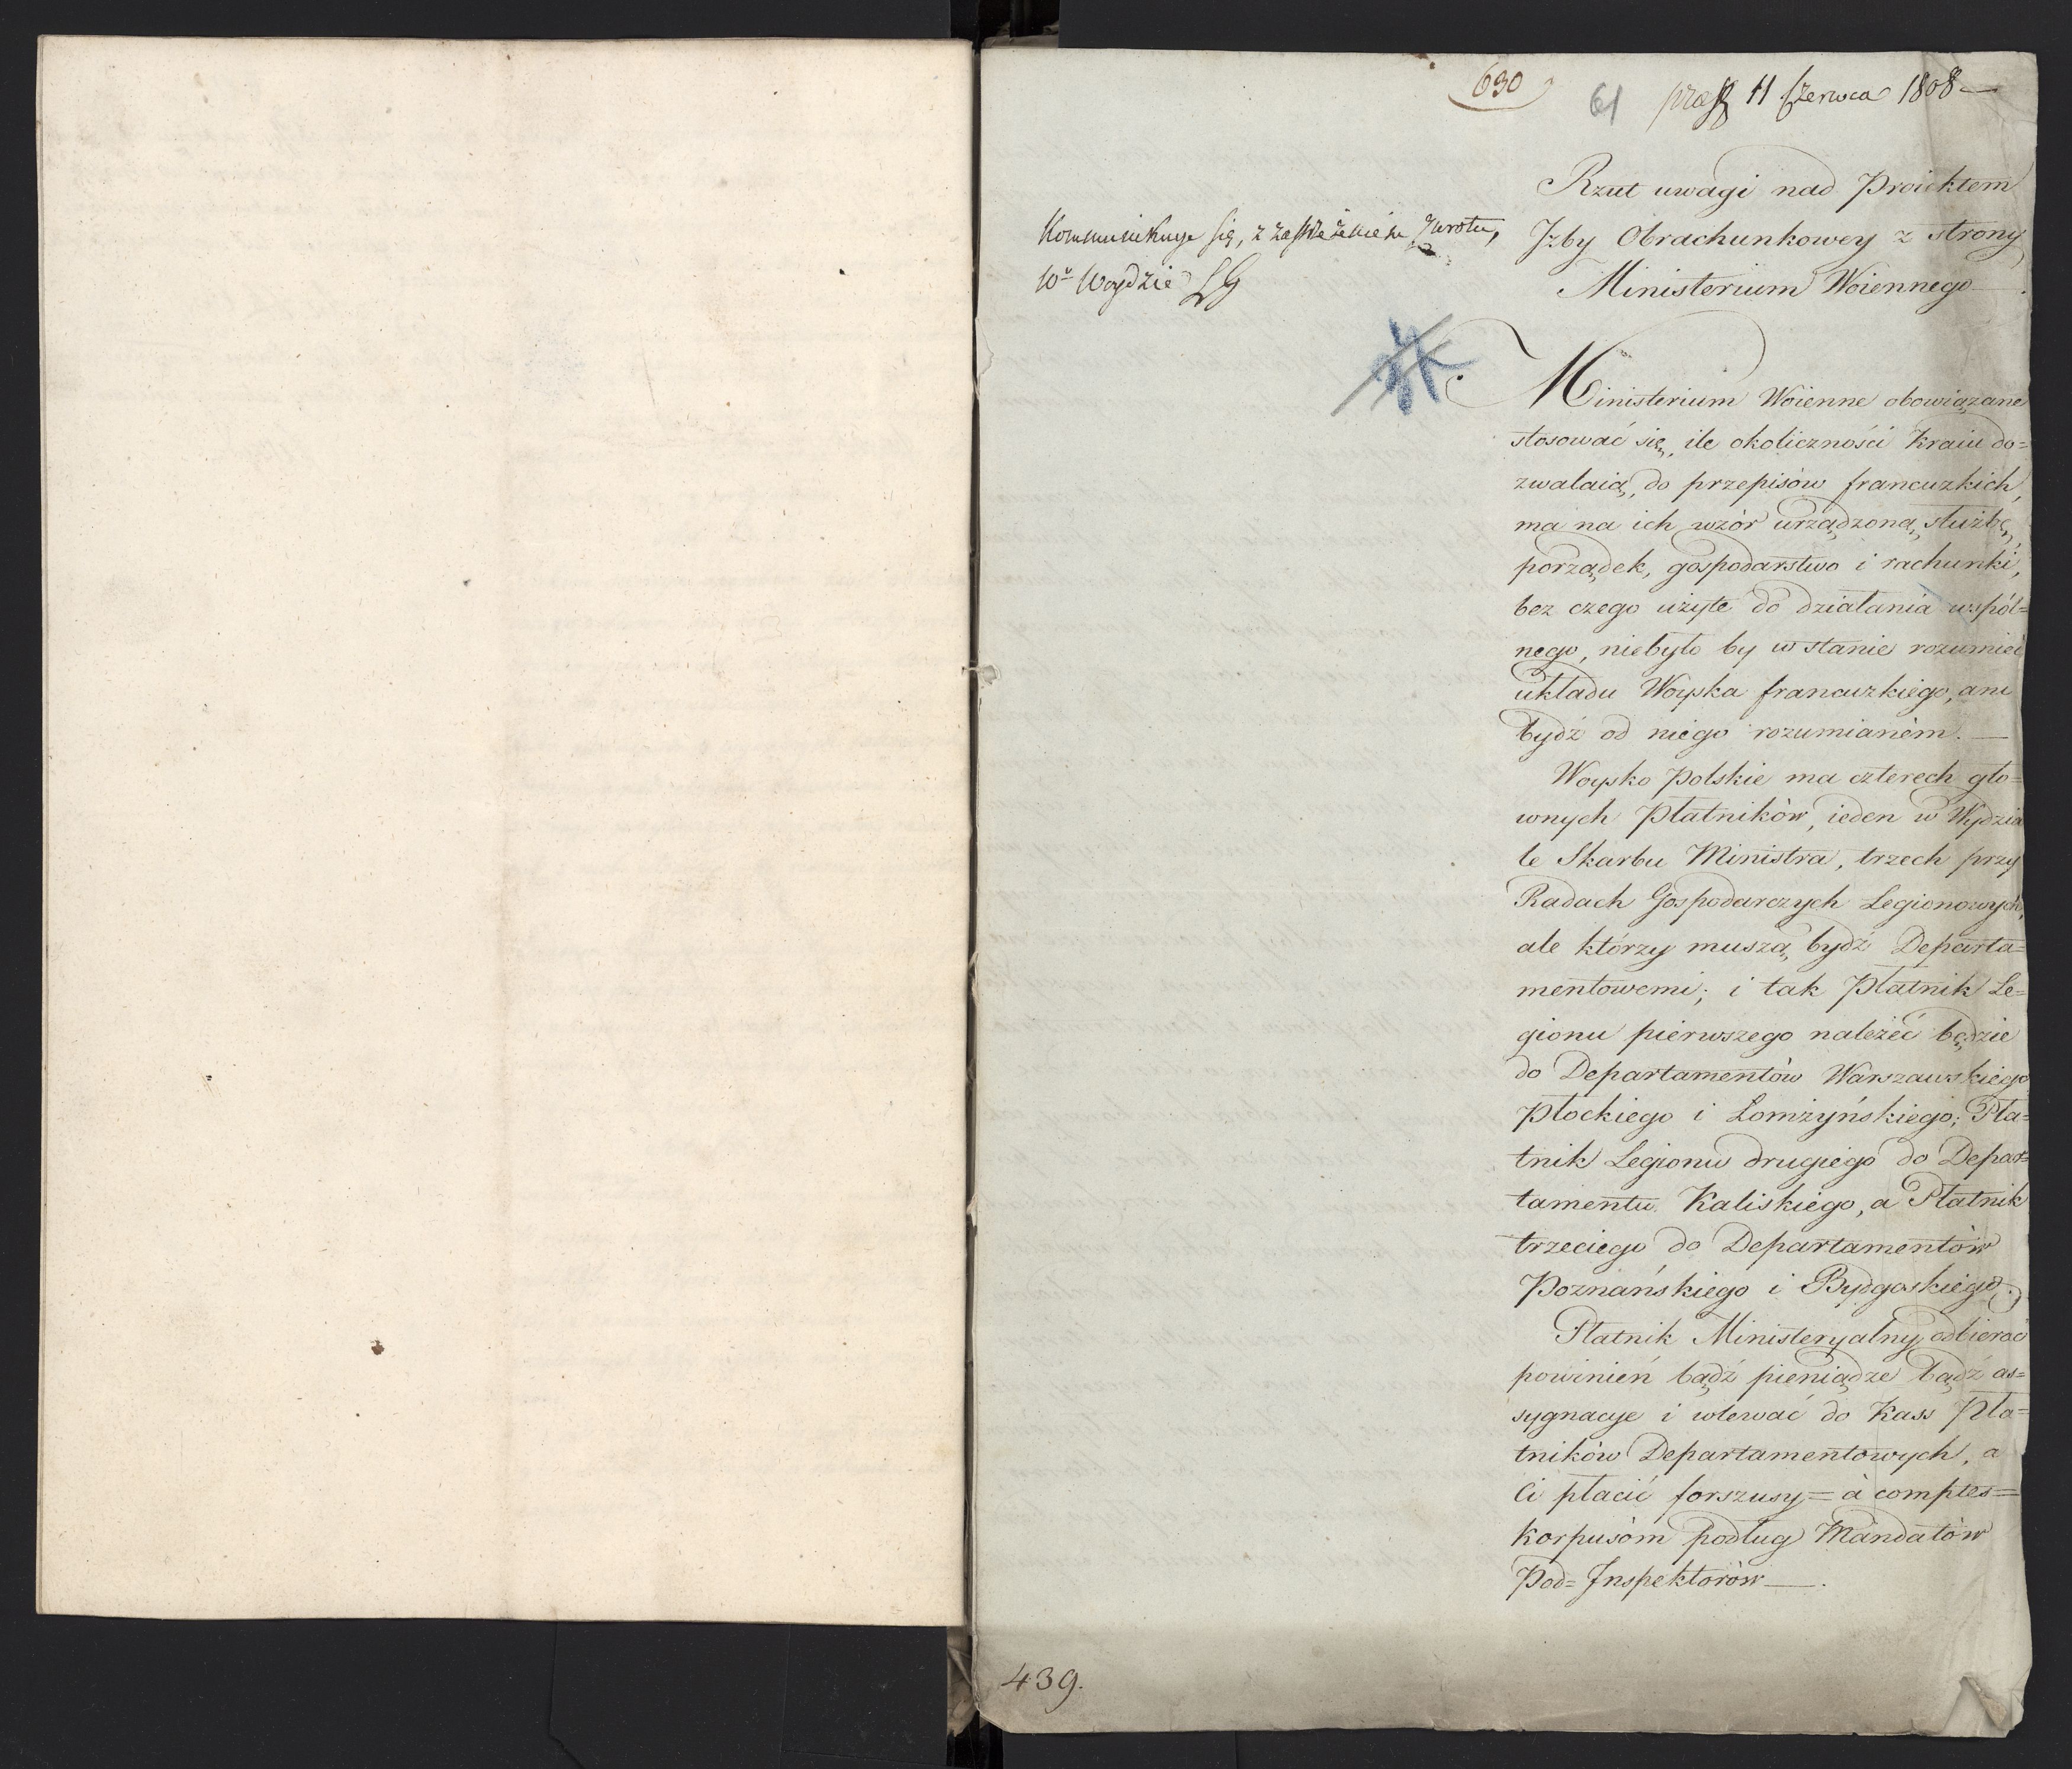 630
61 praes 11 Czerwca 1808 —
Rzut uwagi nad Proiektem
Jzby Obrachunkowey z strony
Ministerium Woiennego —.
Kommunikuye się, z zastrzeżeniem zwrotu,
Wu Woydzie LG
Ministerium Woienne obowiązane
stosować się, ile okoliczności Kraiu do=
zwalaią, do przepisów francuzkich,
ma na ich wzór urządzoną służbę,
porządek, gospodarstwo i rachunki,
bez czego użyte do działania wspól=
nego, niebyło by w stanie rozumieć
układu Woyska francuzkiego, ani
bydź od niego rozumianém. —
Woysko Polskie ma czterech gło=
wnych Płatników, ieden w Wydzia
le Skarbu Ministra, trzech przy
Radach Gospodarczych Legionowych,
ale którzy muszą bydź Departa=
mentowemi; i tak Płatnik Le=
gionu pierwszego należeć będzie
do Departamentów Warszawskiego
Płockiego i Lomżyńskiego; Pła=
tnik Legionu drugiego do Depar=
tamentu Kaliskiego, a Płatnik
trzeciego do Departamentów
Poznańskiego i Bydgoskiego.
Płatnik Ministeryalny odbierać
powinień bądź pieniądze bądź as=
sygnacye i wlewać do Kass Pła=
tników Departamentowych, a
Ci płacić forszusy = à comptes =
Korpusóm podług Mandatów
Pod= Jnspektorów —.
439.